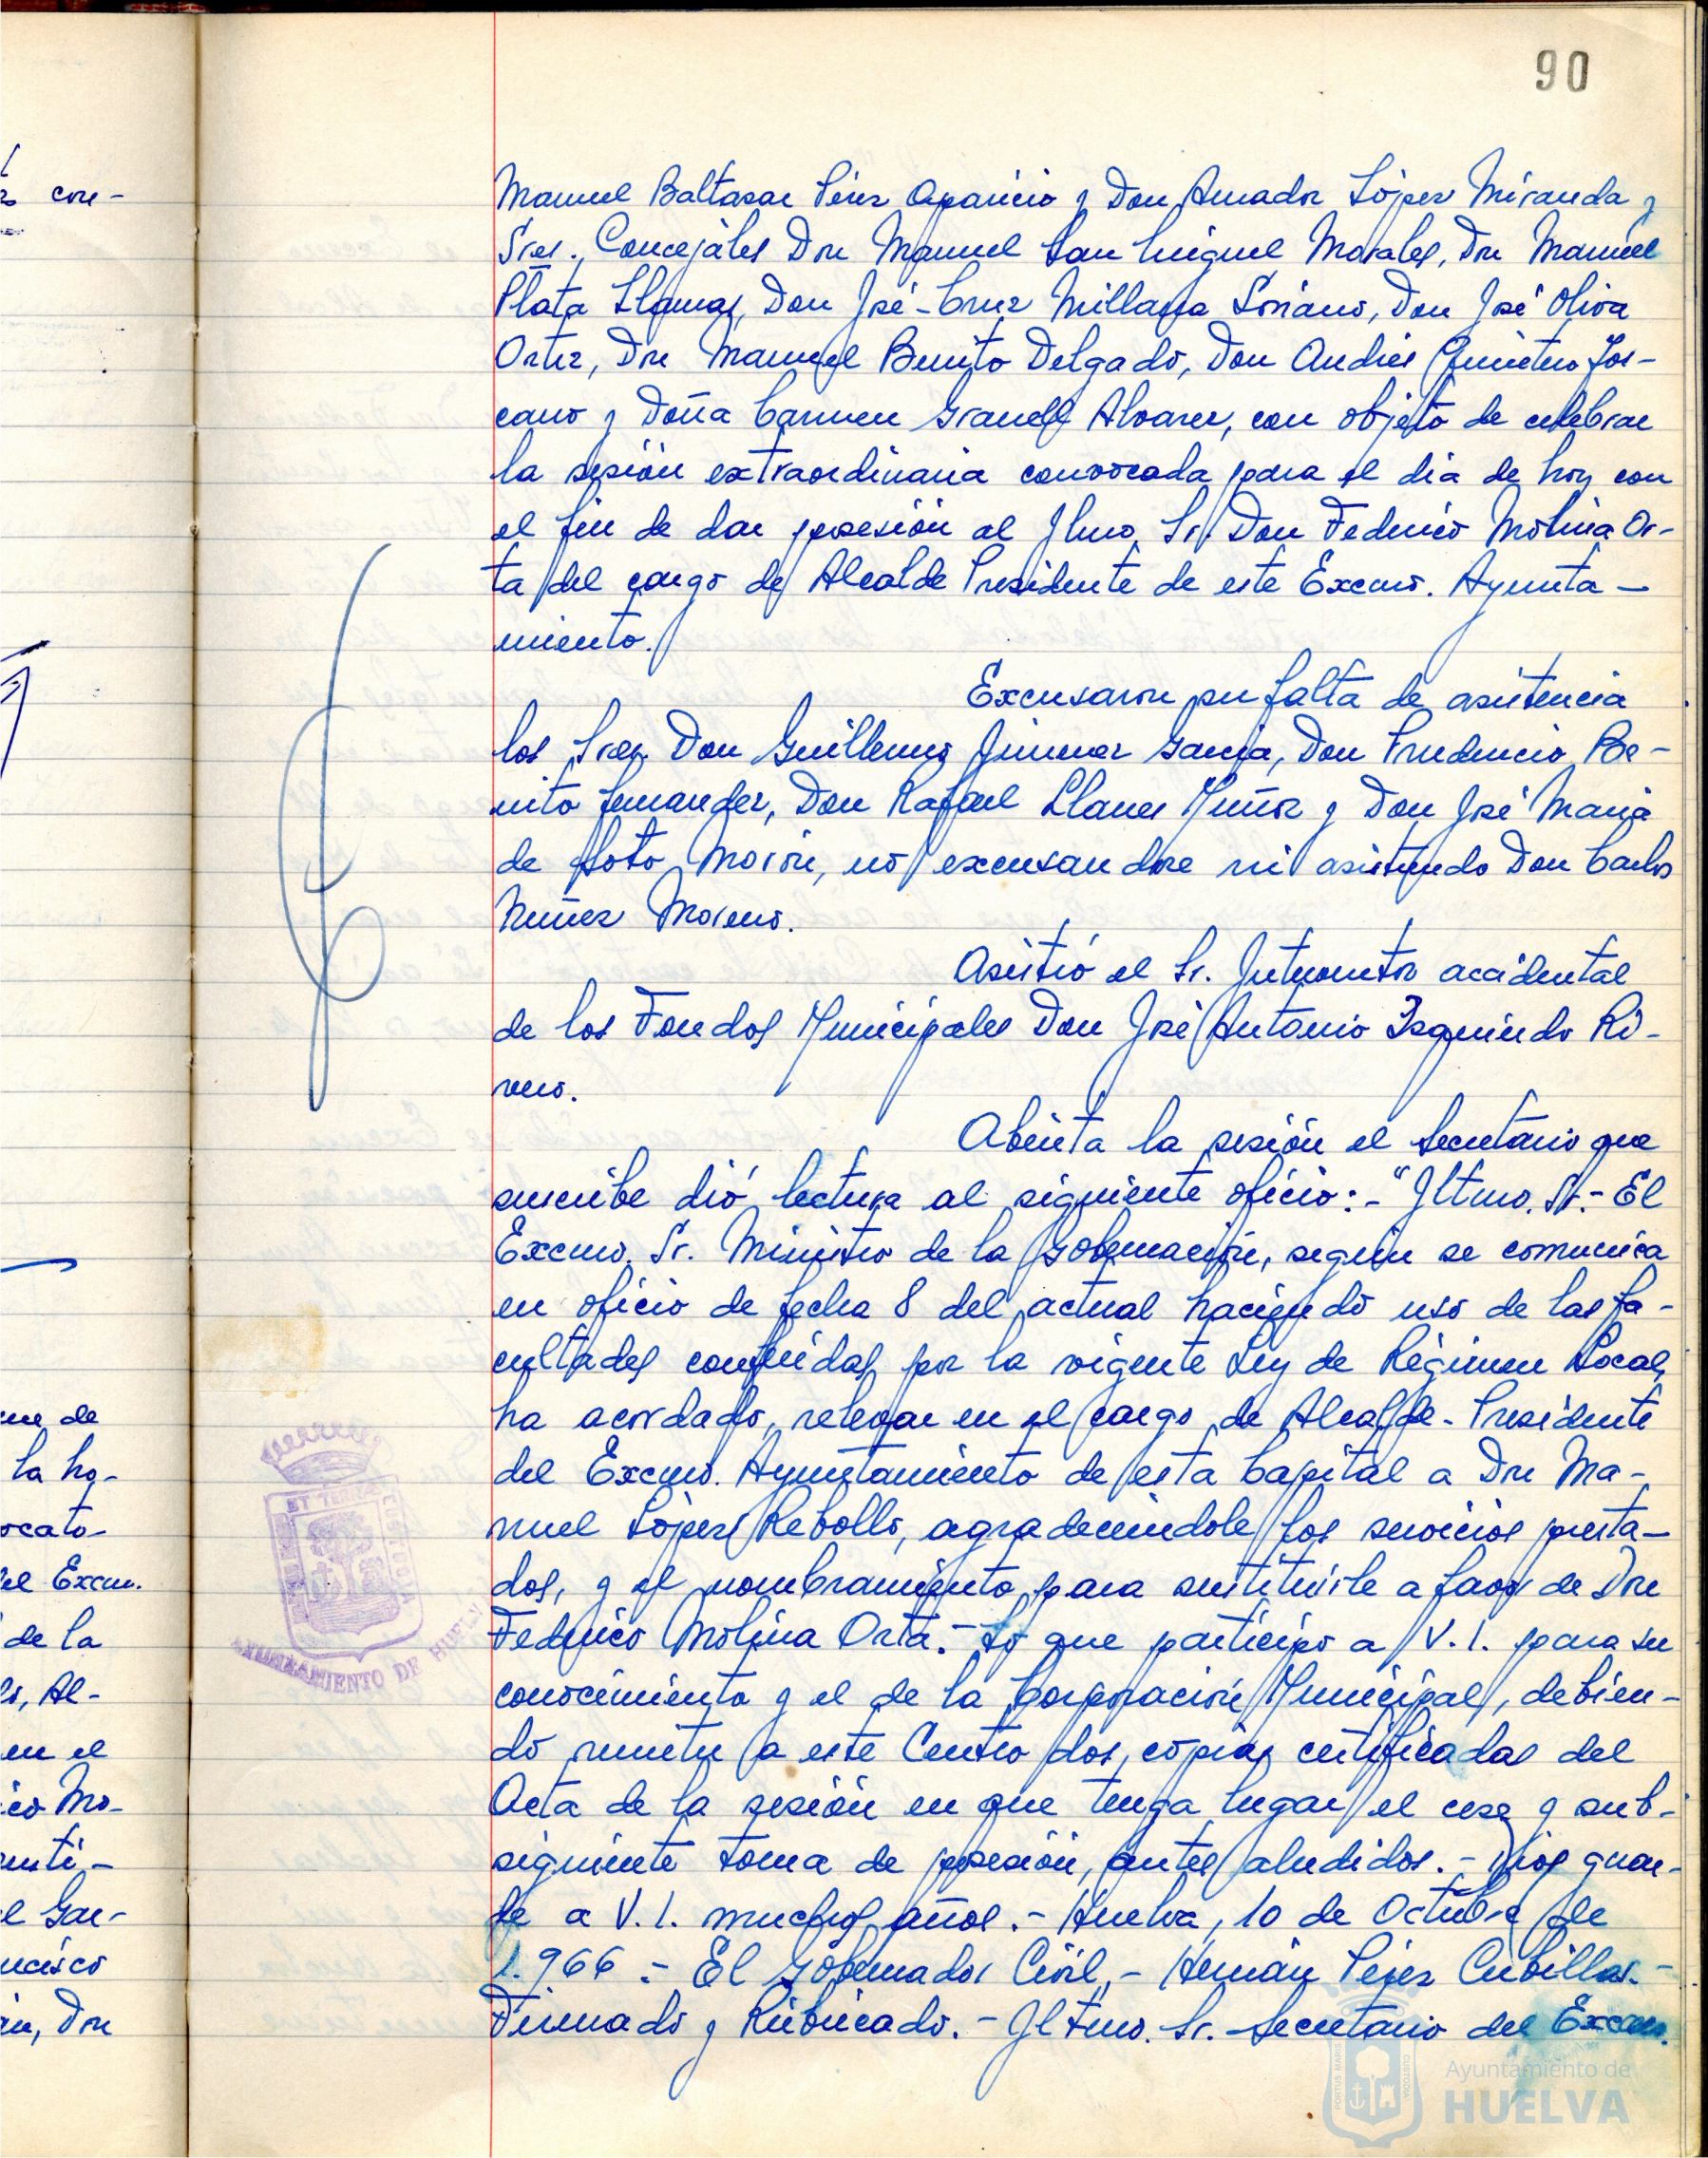 90
Manuel Baltasar Pérez Aparicio y Don Amador López Miranda y
Sres. Concejales Don Manuel San Miguel Morales, Don Manuel
Plata Llamas, Don José-Cruz Millana Soriano, Don José Oliva
Ortiz, Don Manuel Benito Delgado, Don Andrés Quintero Tos-
cano y Doña Carmen Granell Alvarez, con objeto de celebrar
la sesión extraordinaria convocada para el dia de hoy con
el fin de dar posesión al Ilmo. Sr. Don Federico Molina Or-
ta del cargo de Alcalde Presidente de este Excmo. Ayunta-
miento.
Excusaron su falta de asistencia
los Sres. Don Guillermo Jimenez Garcia, Don Prudencio Be-
nito Fernandez, Don Rafael Llanes Muñoz y Don José Maria
de Soto Morón, no excusandose ni asistiendo Don Carlos
Nuñez Moreno.
Asistió el Sr. Interventor accidental
de los Fondos Municipales Don José Antonio Izquierdo Ri-
vero.
Abierta la sesión el Secretario que
suscribe dió lectura al siguiente oficio:-"Iltmo. Sr.- El
Excmo. Sr. Ministro de la Gobernación, según se comunica
en oficio de fecha 8 del actual haciendo uso de las fa-
cultades conferidas por la vigente Ley de Régimen Local,
ha acordado, relevar en el cargo de Alcalde-Presidente
del Excmo. Ayuntamiento de esta Capital a Don Ma-
nuel López Rebollo, agradeciéndole los servicios presta-
dos, y el nombramiento para sustituirle a favor de Don
Federico Molina Orta.- Lo que participo a V.I. para su
conocimiento y el de la Corporación Municipal, debien-
do remitir a este Centro dos copias certificadas del
Acta de la sesión en que tenga lugar el cese y sub-
siguiente toma de posesión, antes aludidos.- Dios guar-
de a V.I. muchos años.- Huelva, 10 de Octubre de
1.966.- El Gobernador Civil,- Hernán Pérez Cubillas.-
Firmado y Rubricado.- Iltmo. Sr. Secretario del Excmo.
AYUNTAMIENTO DE HUELVA
Ayuntamiento de
HUELVA